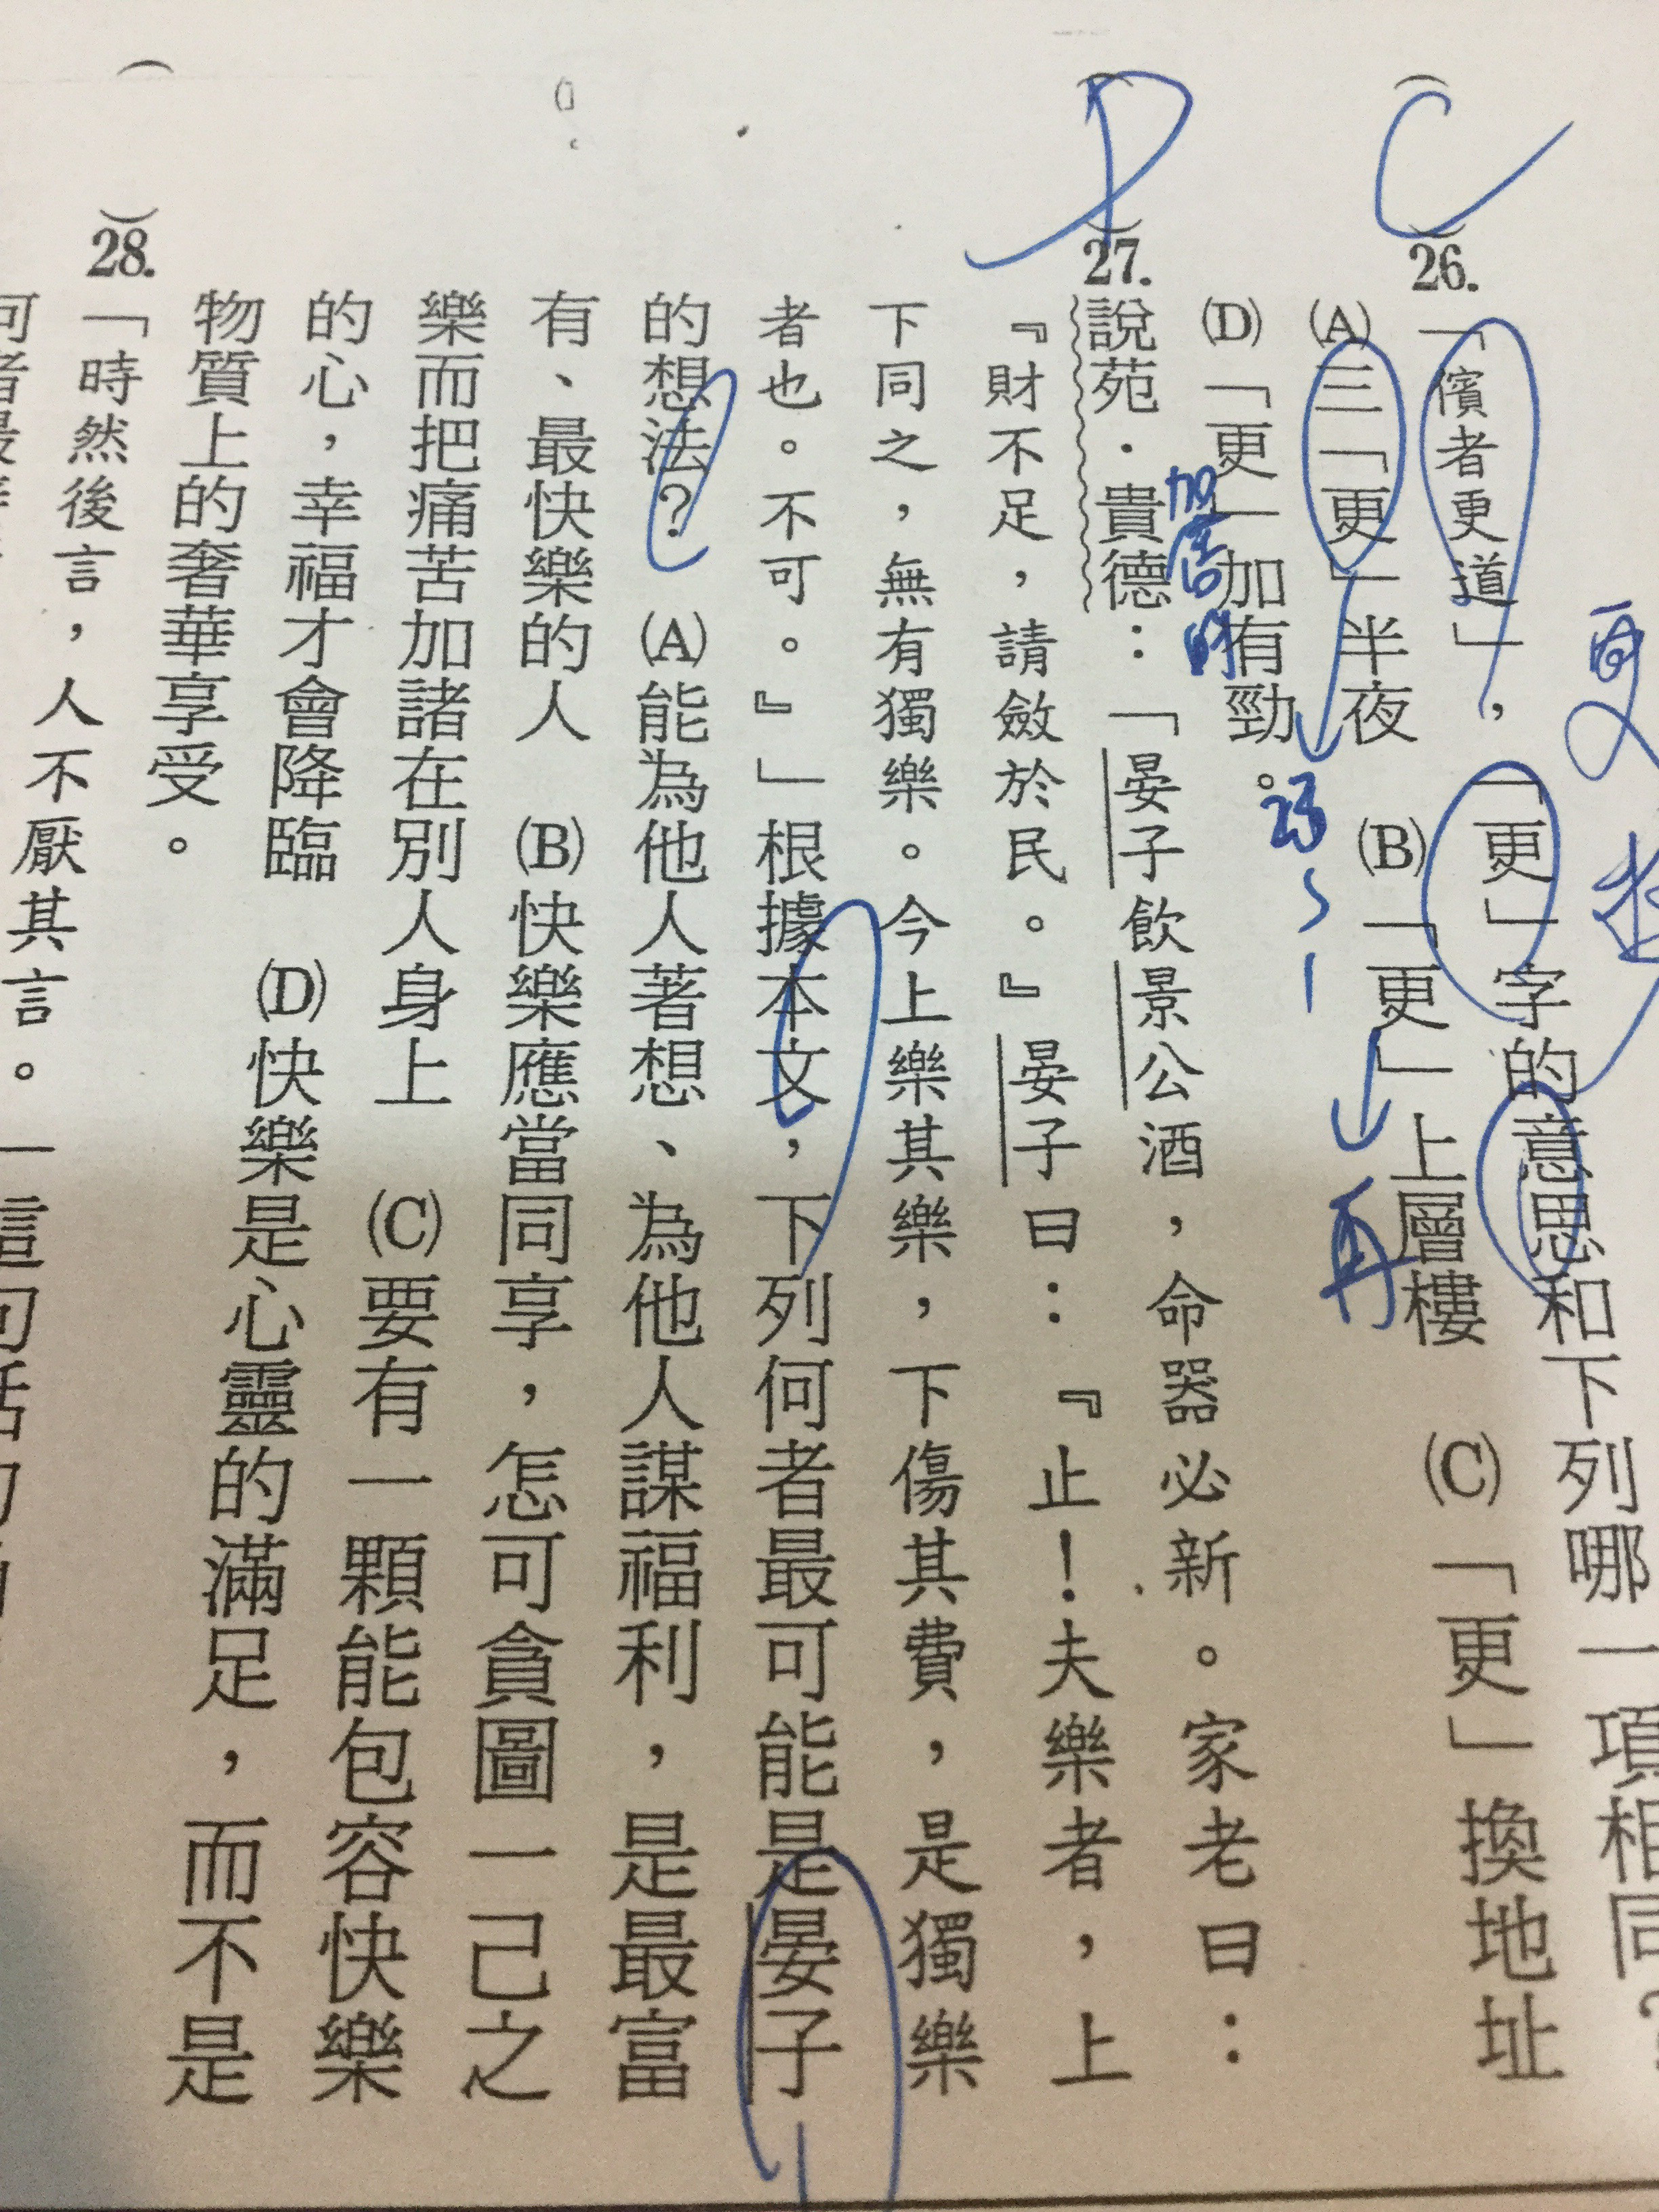 C
26.「儐者更道」,「更」字的意思和下列哪一項相同?
(A)三「更」半夜 (B)「更」上層樓 (C)「更」換地址
再
(D)「更」加有勁。
D
27.說苑.貴德:「晏子飲景公酒,命器必新。家老曰:
『財不足,請斂於民。』晏子曰:『止!夫樂者,上
下同之,無有獨樂。今上樂其樂,下傷其費,是獨樂
者也。不可。』」根據本文,下列何者最可能是晏子
的想法? (A)能為他人著想、為他人謀福利,是最富
有、最快樂的人 (B)快樂應當同享,怎可貪圖一己之
樂而把痛苦加諸在別人身上 (C)要有一顆能包容快樂
的心,幸福才會降臨 (D)快樂是心靈的滿足,而不是
物質上的奢華享受。
( )28.「時然後言,人不厭其言。」這句話的
何者最